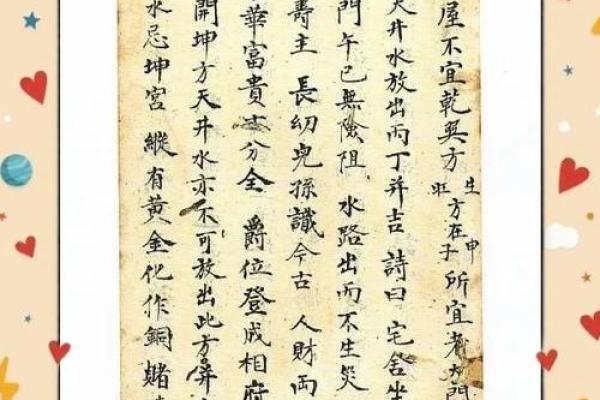 屋不宜乾巽方生旺方在申子所宜者大門
天井水放出丙丁并吉 詩曰 宅舍坐
門午巳無險阻 水路出丙不生災
壽主 長幼兒孫識今古 人財兩
華富貴十分全 爵位登成相府
開坤方天井水亦不可放出此方
水忌坤宮 縱有黃金化作銅 賭